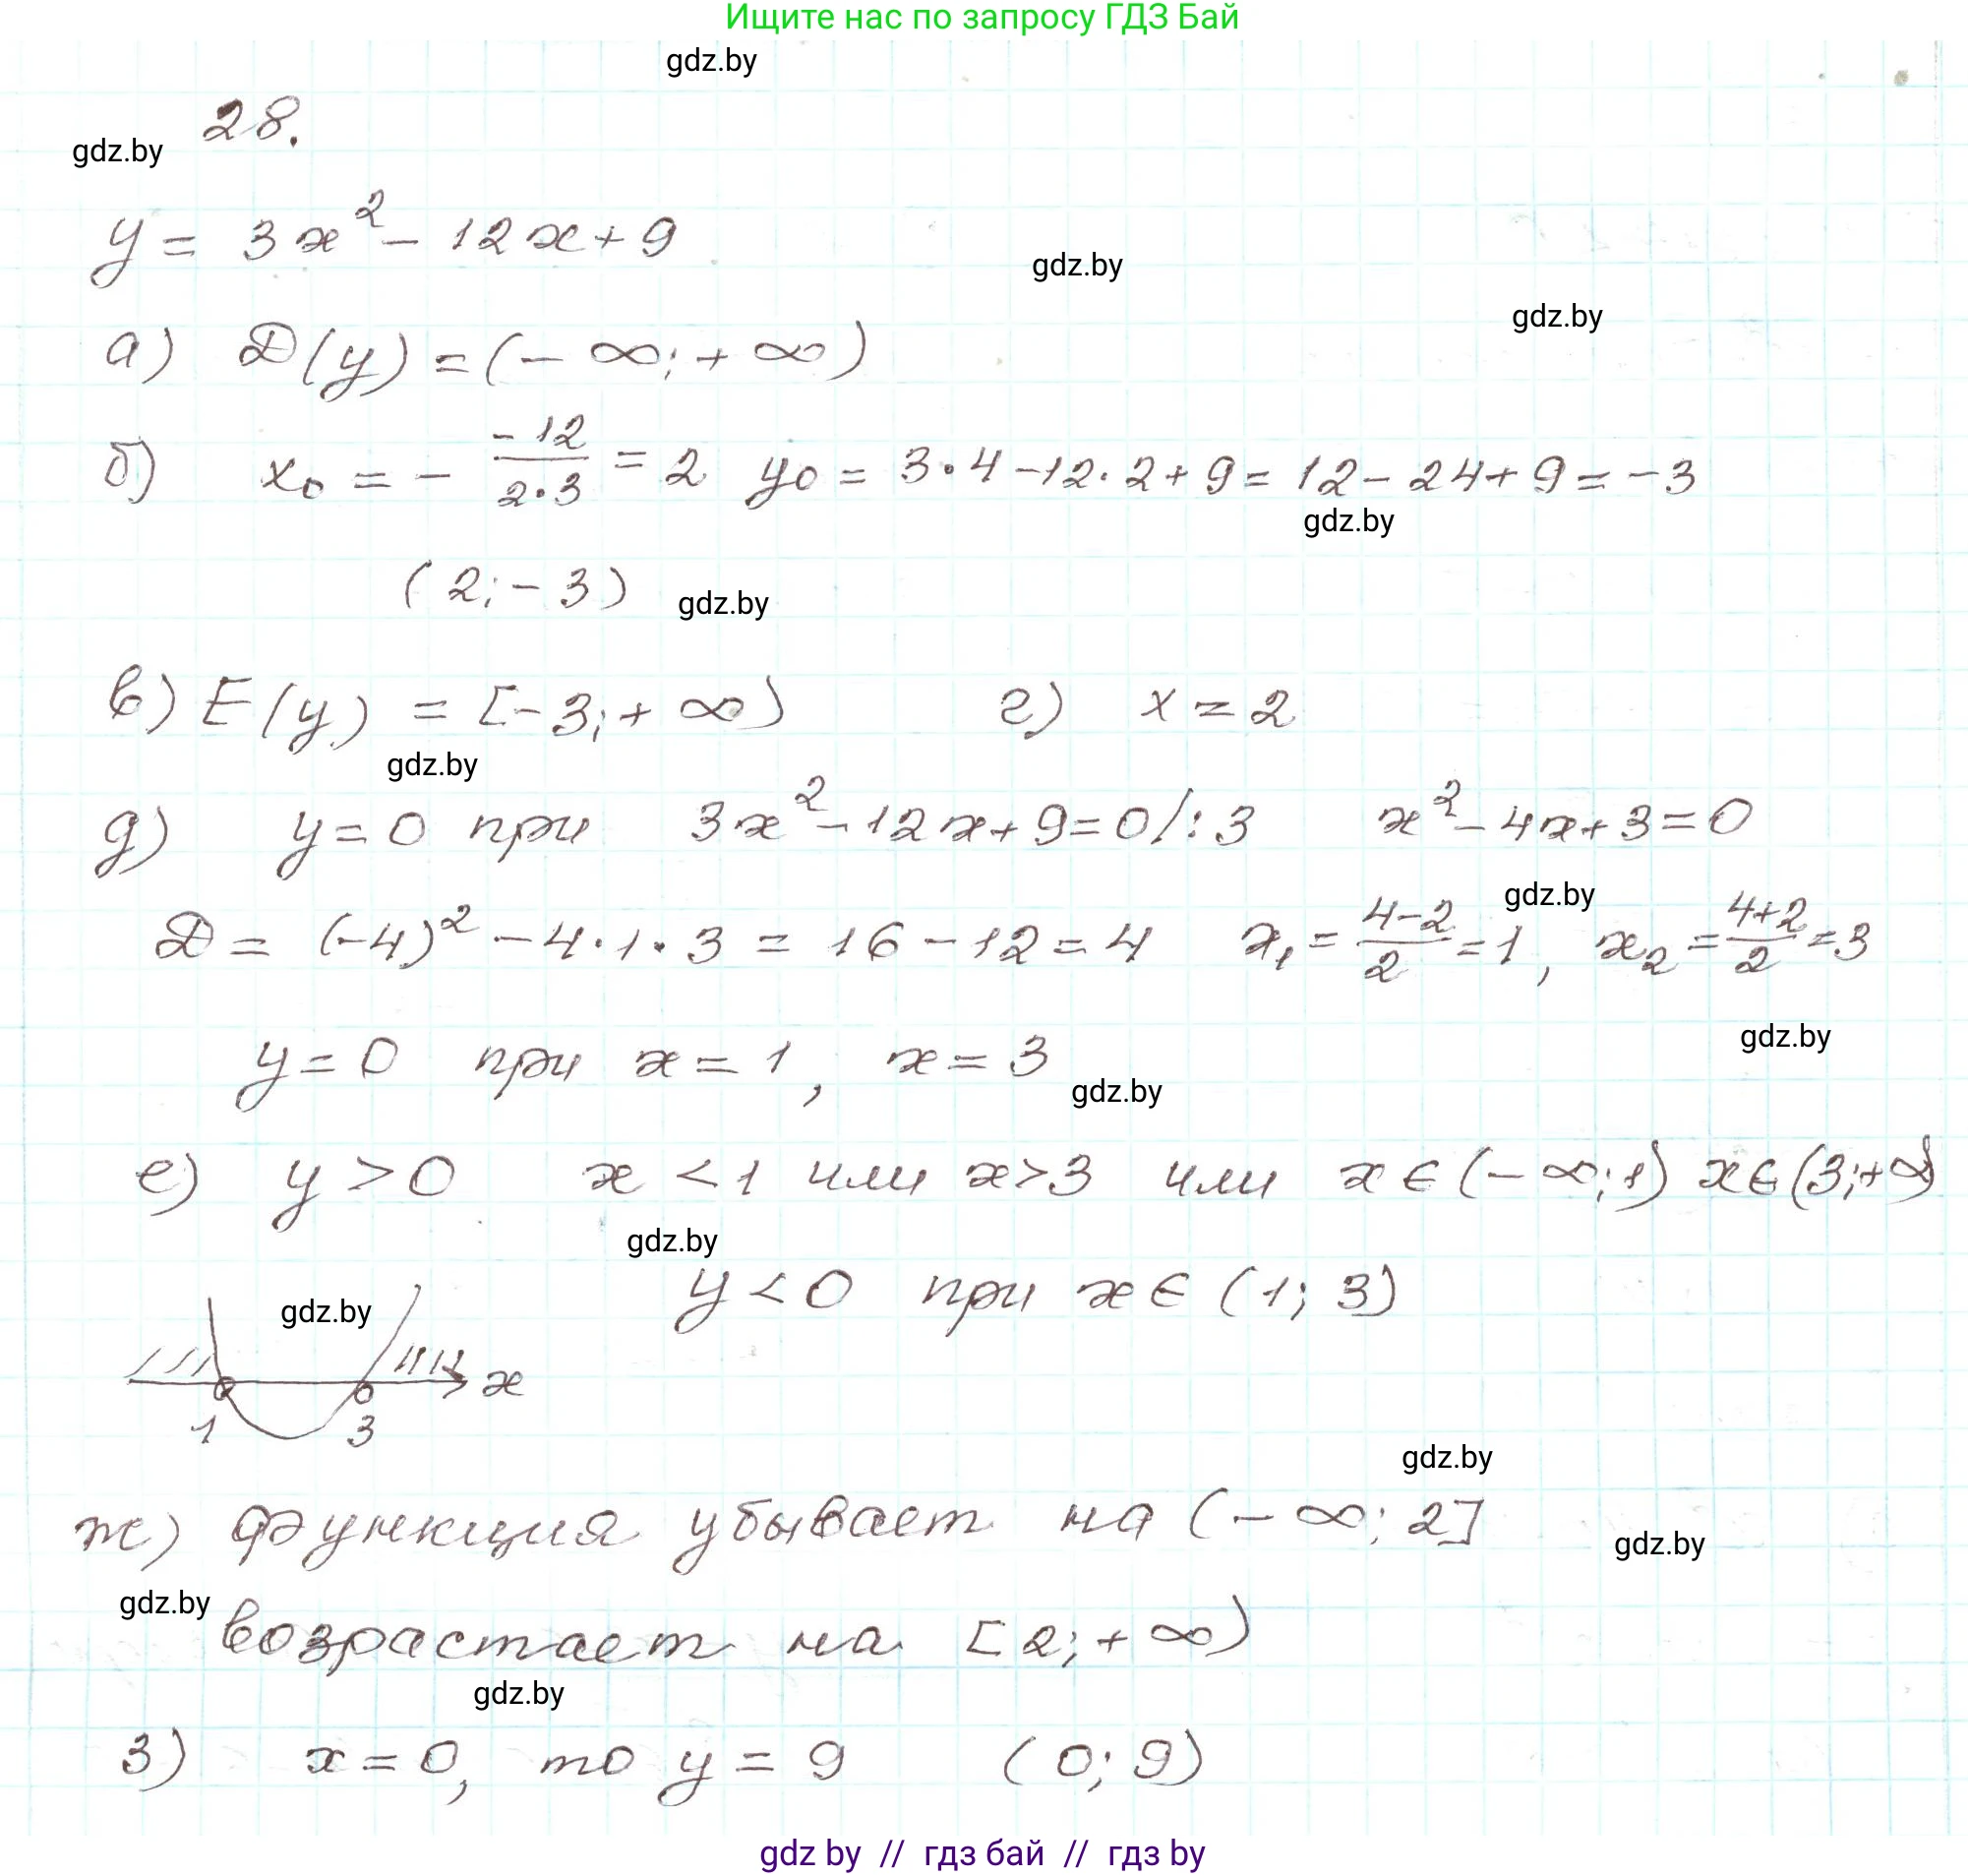 Ищите нас по запросу ГДЗ Бай
gdz.by
28.
gdz.by
y = 3x² - 12x + 9
gdz.by
gdz.by
а) D(y) = (-∞; +∞)
б) x₀ = - -12/2·3 = 2 y₀ = 3·4 - 12·2 + 9 = 12 - 24 + 9 = -3
gdz.by
(2; -3)
gdz.by
в) E(y) = [-3; +∞) г) x = 2
gdz.by
д) y = 0 при 3x² - 12x + 9 = 0 /: 3 x² - 4x + 3 = 0
gdz.by
D = (-4)² - 4·1·3 = 16 - 12 = 4 x₁ = 4-2/2 = 1, x₂ = 4+2/2 = 3
gdz.by
y = 0 при x = 1, x = 3
gdz.by
е) y > 0 x < 1 или x > 3 или x ∈ (-∞; 1) x ∈ (3; +∞)
gdz.by
y < 0 при x ∈ (1; 3)
gdz.by
x
1 3
gdz.by
ж) функция убывает на (-∞; 2]
gdz.by
gdz.by
возрастает на [2; +∞)
gdz.by
з) x = 0, то y = 9 (0; 9)
gdz by // гдз бай // gdz by